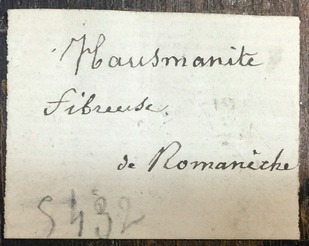 Hausmanite
Fibreuse.
de Romanèche
5432